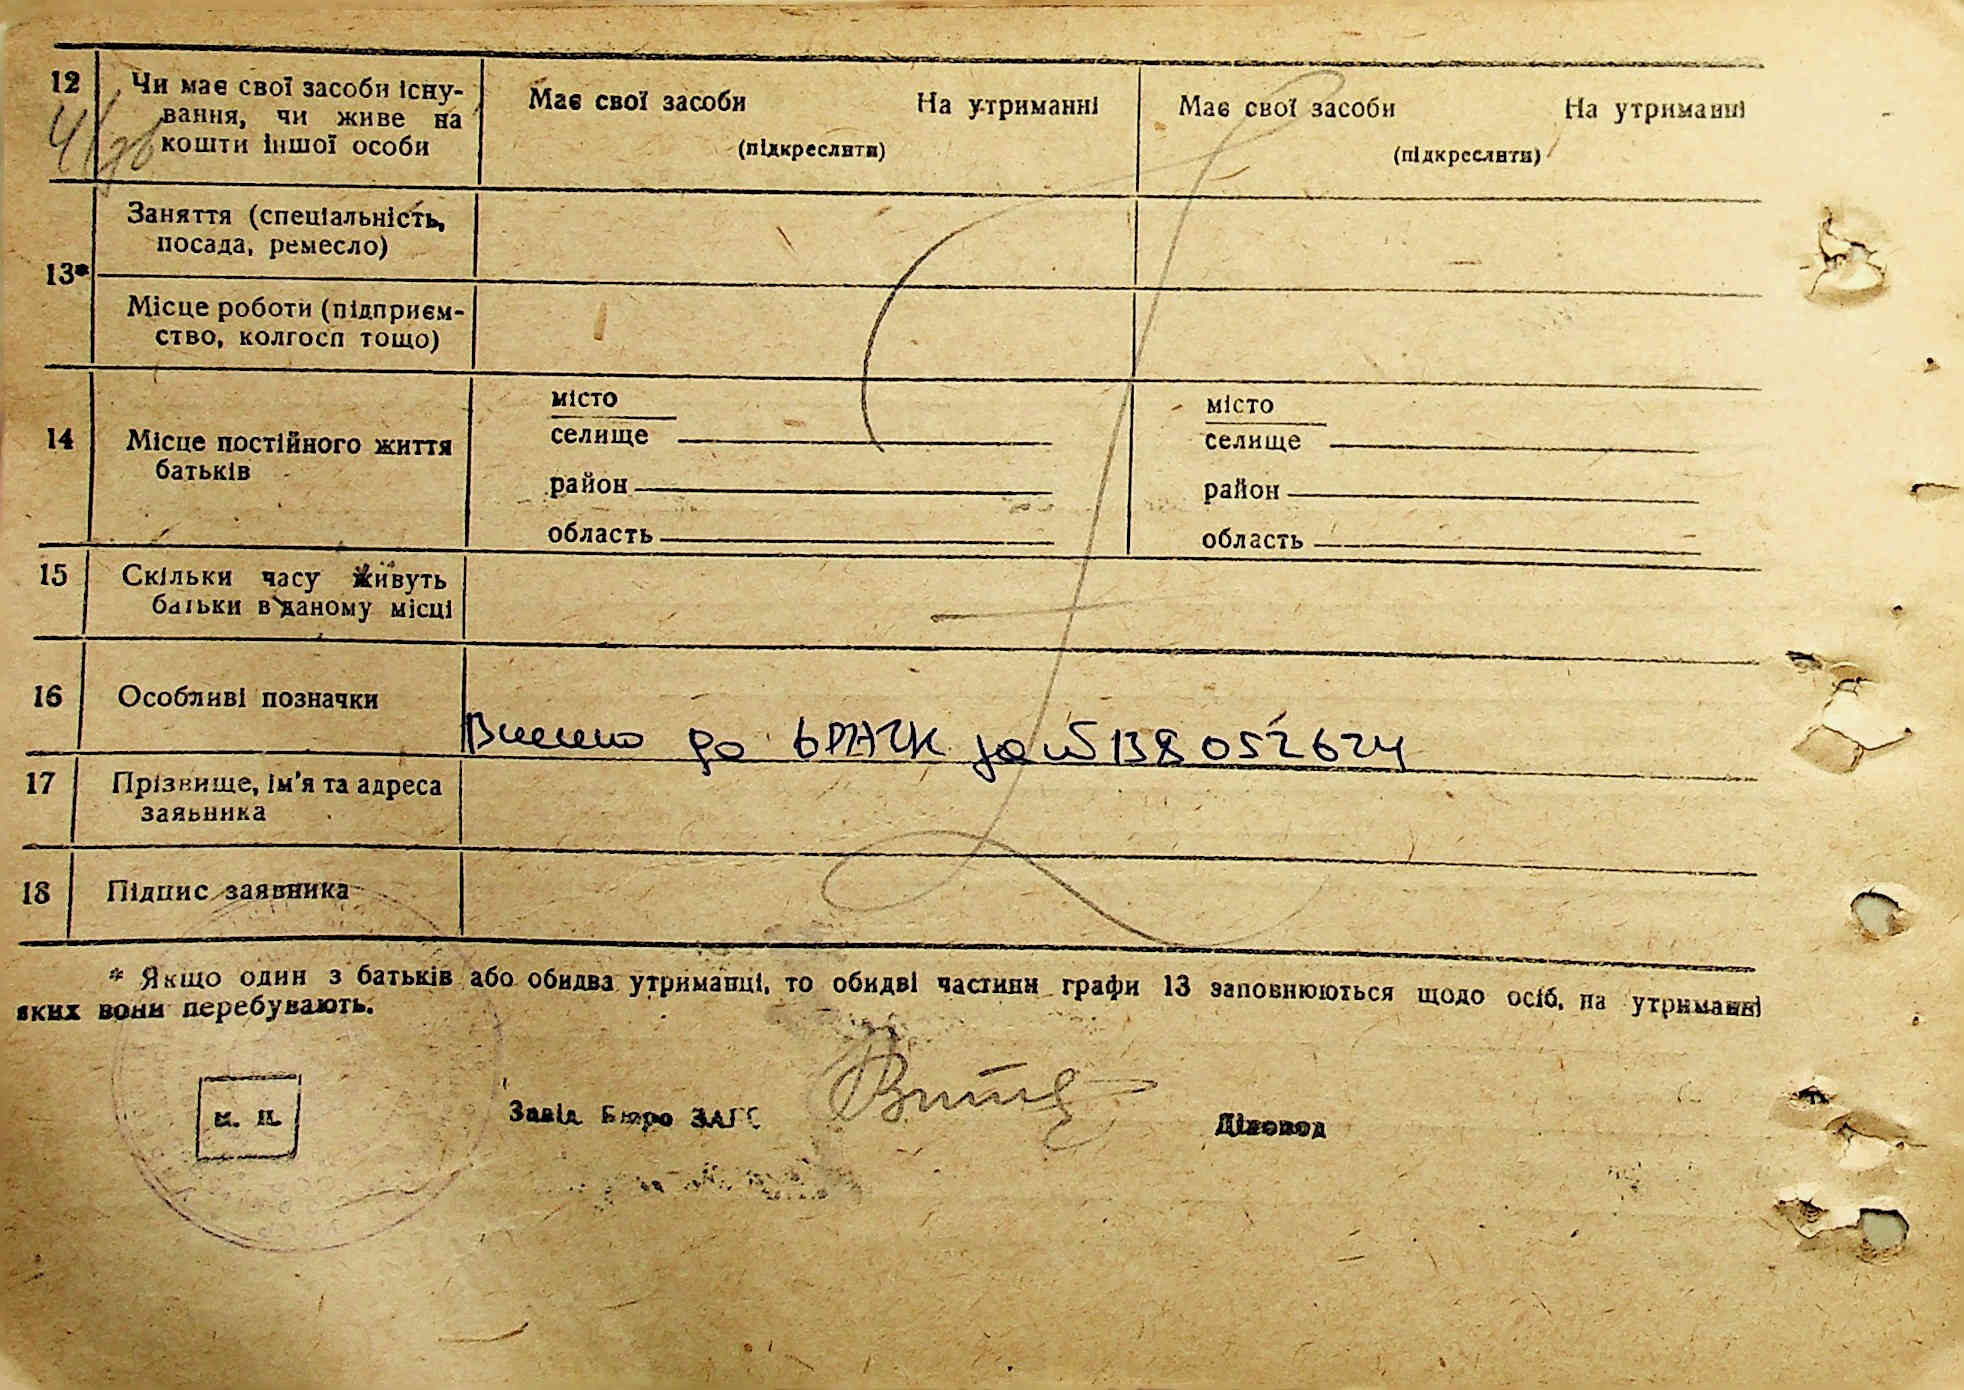 12 Чи має свої засоби існу-
вання, чи живе на
кошти іншої особи
Має свої засоби На утриманні
(підкреслити)
Має свої засоби На утриманні
(підкреслити)
13* Заняття (спеціальність,
посада, ремесло)
Місце роботи (підприєм-
ство, колгосп тощо)
14 Місце постійного життя
батьків
місто
селище
район
область
місто
селище
район
область
15 Скільки часу живуть
батьки в даному місці
16 Особливі позначки
Внесено до ДРАЦС за № 138052624
17 Прізвище, ім'я та адреса
заявника
18 Підпис заявника
* Якщо один з батьків або обидва утриманці, то обидві частини графи 13 заповнюються щодо осіб, на утриманні
яких вони перебувають.
м. п.
Завід. Бюро ЗАГС
Діловод